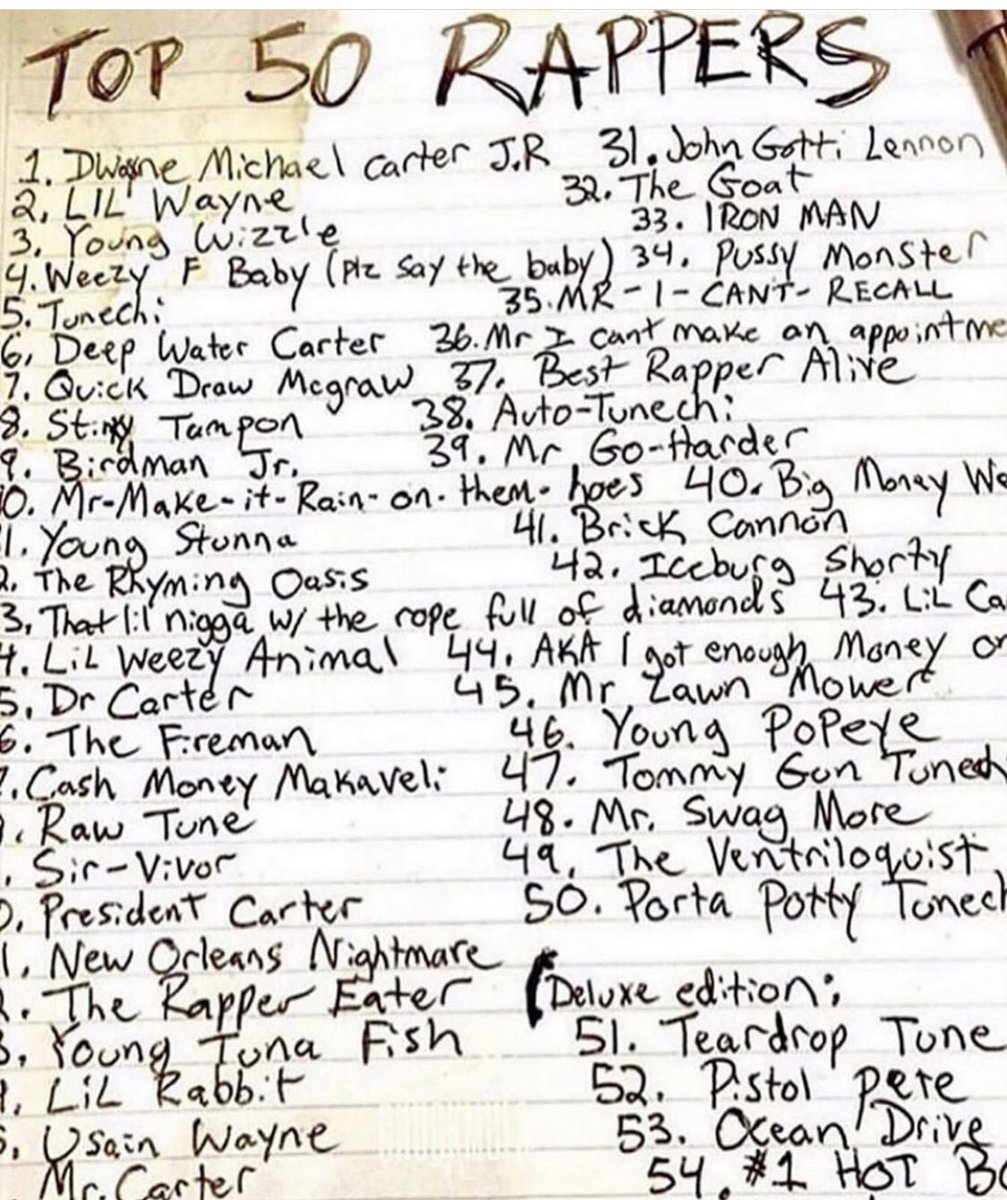 TOP 50 RAPPERS
1. Dwayne Michael Carter J.R
2. LIL Wayne
3. Young Wizzle
4. Weezy F Baby (plz say the baby)
5. Tunechi
6, Deep Water Carter
7. Quick Draw Mcgraw
8. Stinky Tampon
9. Birdman Jr.
0. Mr-Make-it-Rain-on-them-hoes
1. Young Stunna
2. The Rhyming Oasis
3, That lil nigga w/ the rope full of diamonds
4. LiL Weezy Animal
5, Dr Carter
6. The Fireman
. Cash Money Makaveli
. Raw Tune
. Sir-Vivor
0. President Carter
1, New Orleans Nightmare
. The Rapper Eater
3, Young Tuna Fish
, LiL Rabbit
, Usain Wayne
Mr.Carter
31. John Gotti Lennon
32. The Goat
33. IRON MAN
34. Pussy Monster
35. MR-I-CANT-RECALL
36. Mr I cant make an appointme
37. Best Rapper Alive
38. Auto-Tunechi
39. Mr Go-Harder
40. Big Money We
41. Brick Cannon
42. Iceburg Shorty
43. LiL Ca
44. AKA I got enough Money o
45. Mr Lawn Mower
46. Young Popeye
47. Tommy Gun Tunech
48. Mr. Swag More
49, The Ventriloquist
50. Porta Potty Tunech
(Deluxe edition:
51. Teardrop Tune
52. Pistol pete
53. Ocean Drive
54. #1 HOT B